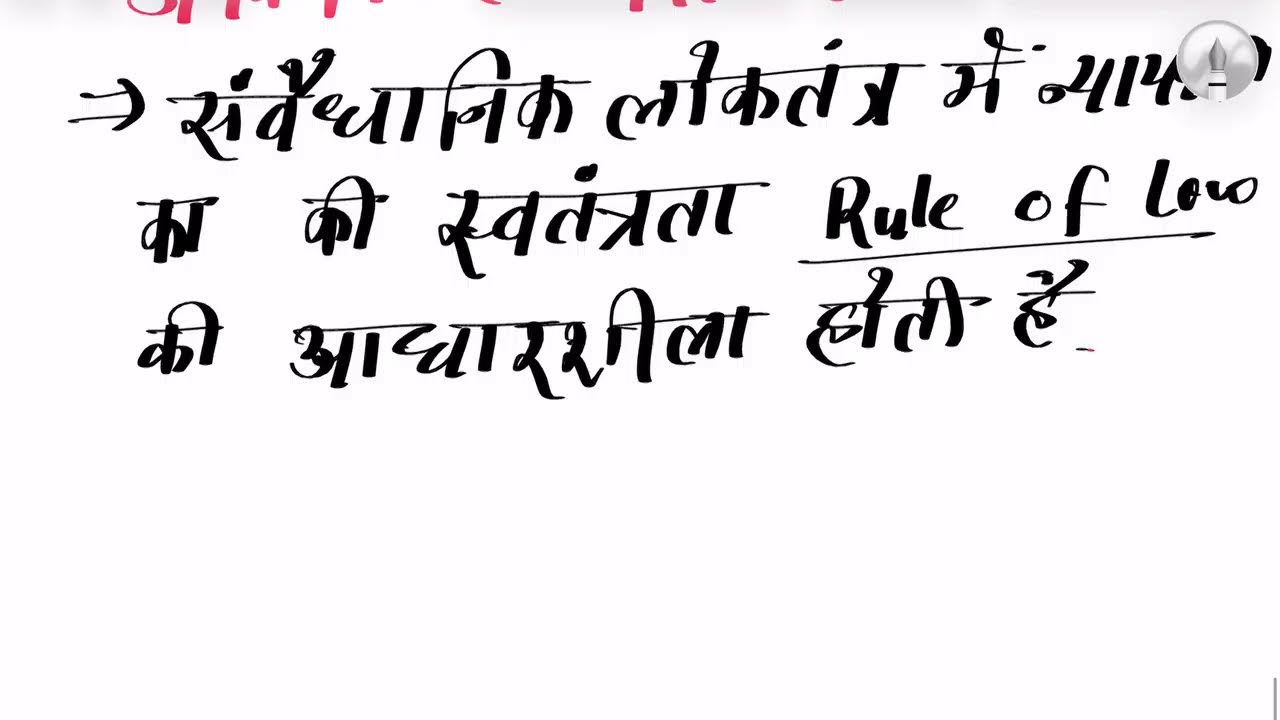 => संवैधानिक लोकतंत्र में
का की स्वतंत्रता Rule of Low
की आधारशीला होती हैं